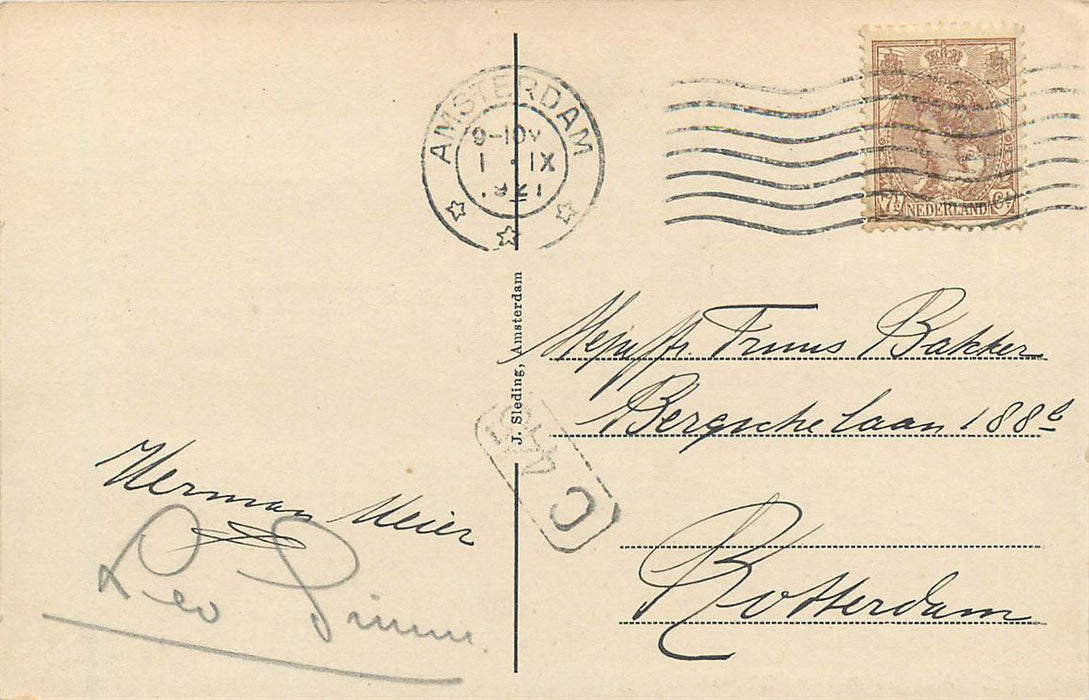 AMSTERDAM
9-10V
1 .IX
.921
7½ NEDERLAND Ct
J. Sleding, Amsterdam
Mejuffr. Truus Bakker
Bergsche laan 188b
Rotterdam
Herman Meier
Leo